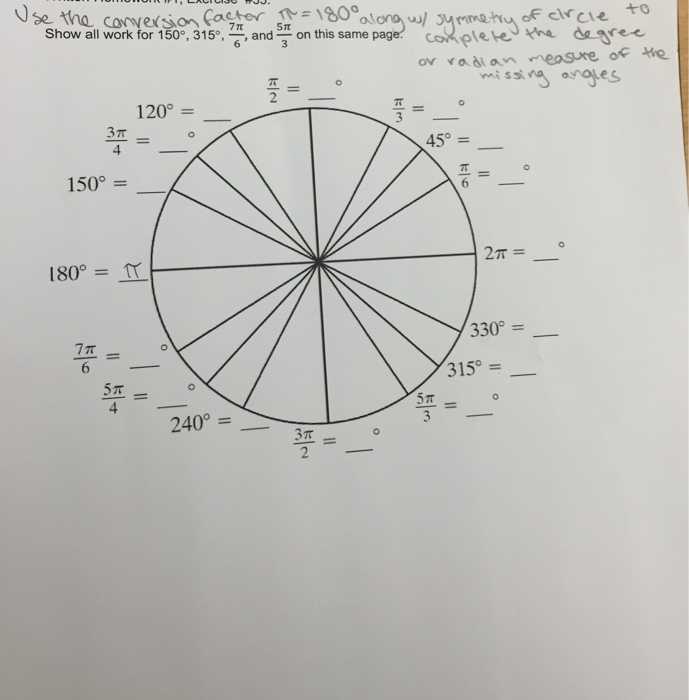 Use the conversion factor π = 180° along w/ symmetry of circle to
complete the degree
or radian measure of the
missing angles
Show all work for 150°, 315°, 7π/6, and 5π/3 on this same page.
π/2 = __°
120° = __
π/3 = __°
3π/4 = __°
45° = __
150° = __
π/6 = __°
180° = π
2π = __°
330° = __
7π/6 = __°
315° = __
5π/4 = __°
5π/3 = __°
240° = __
3π/2 = __°